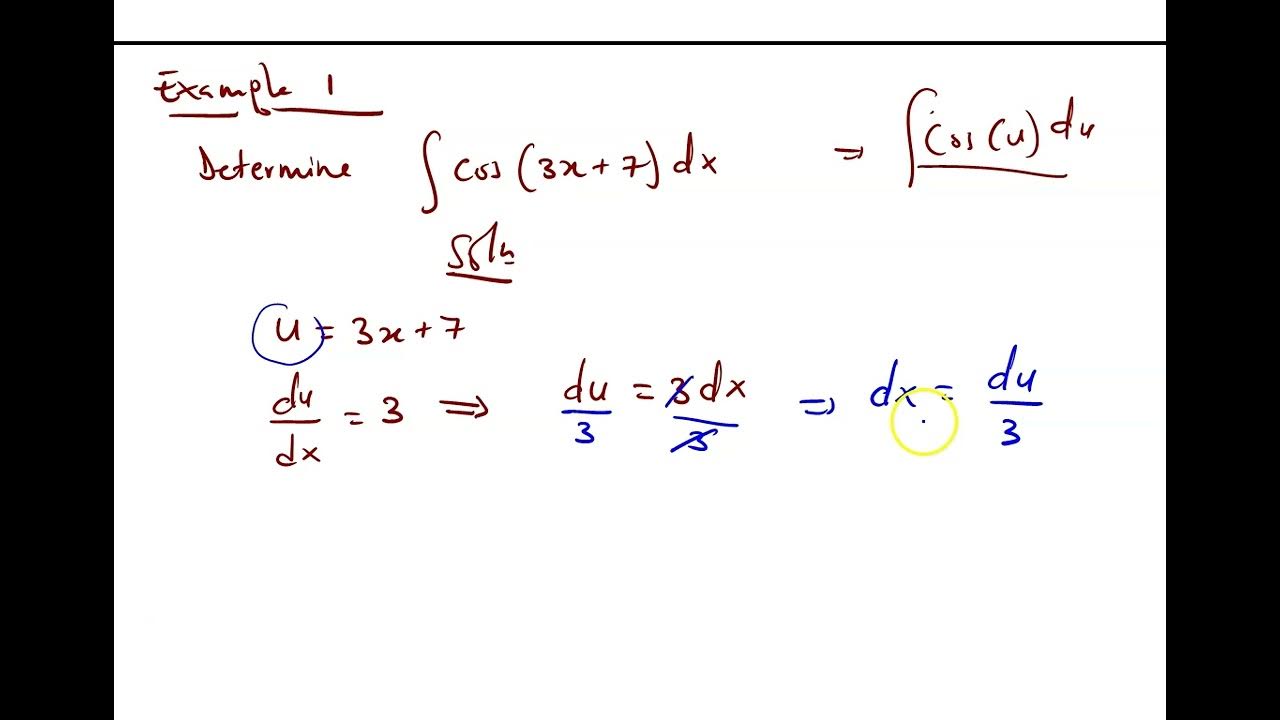 Example 1
Determine ∫ cos (3x + 7) dx ⇒ ∫ cos (u) du
Soln
u = 3x + 7
du/dx = 3 ⇒ du/3 = 3dx/3 ⇒ dx = du/3